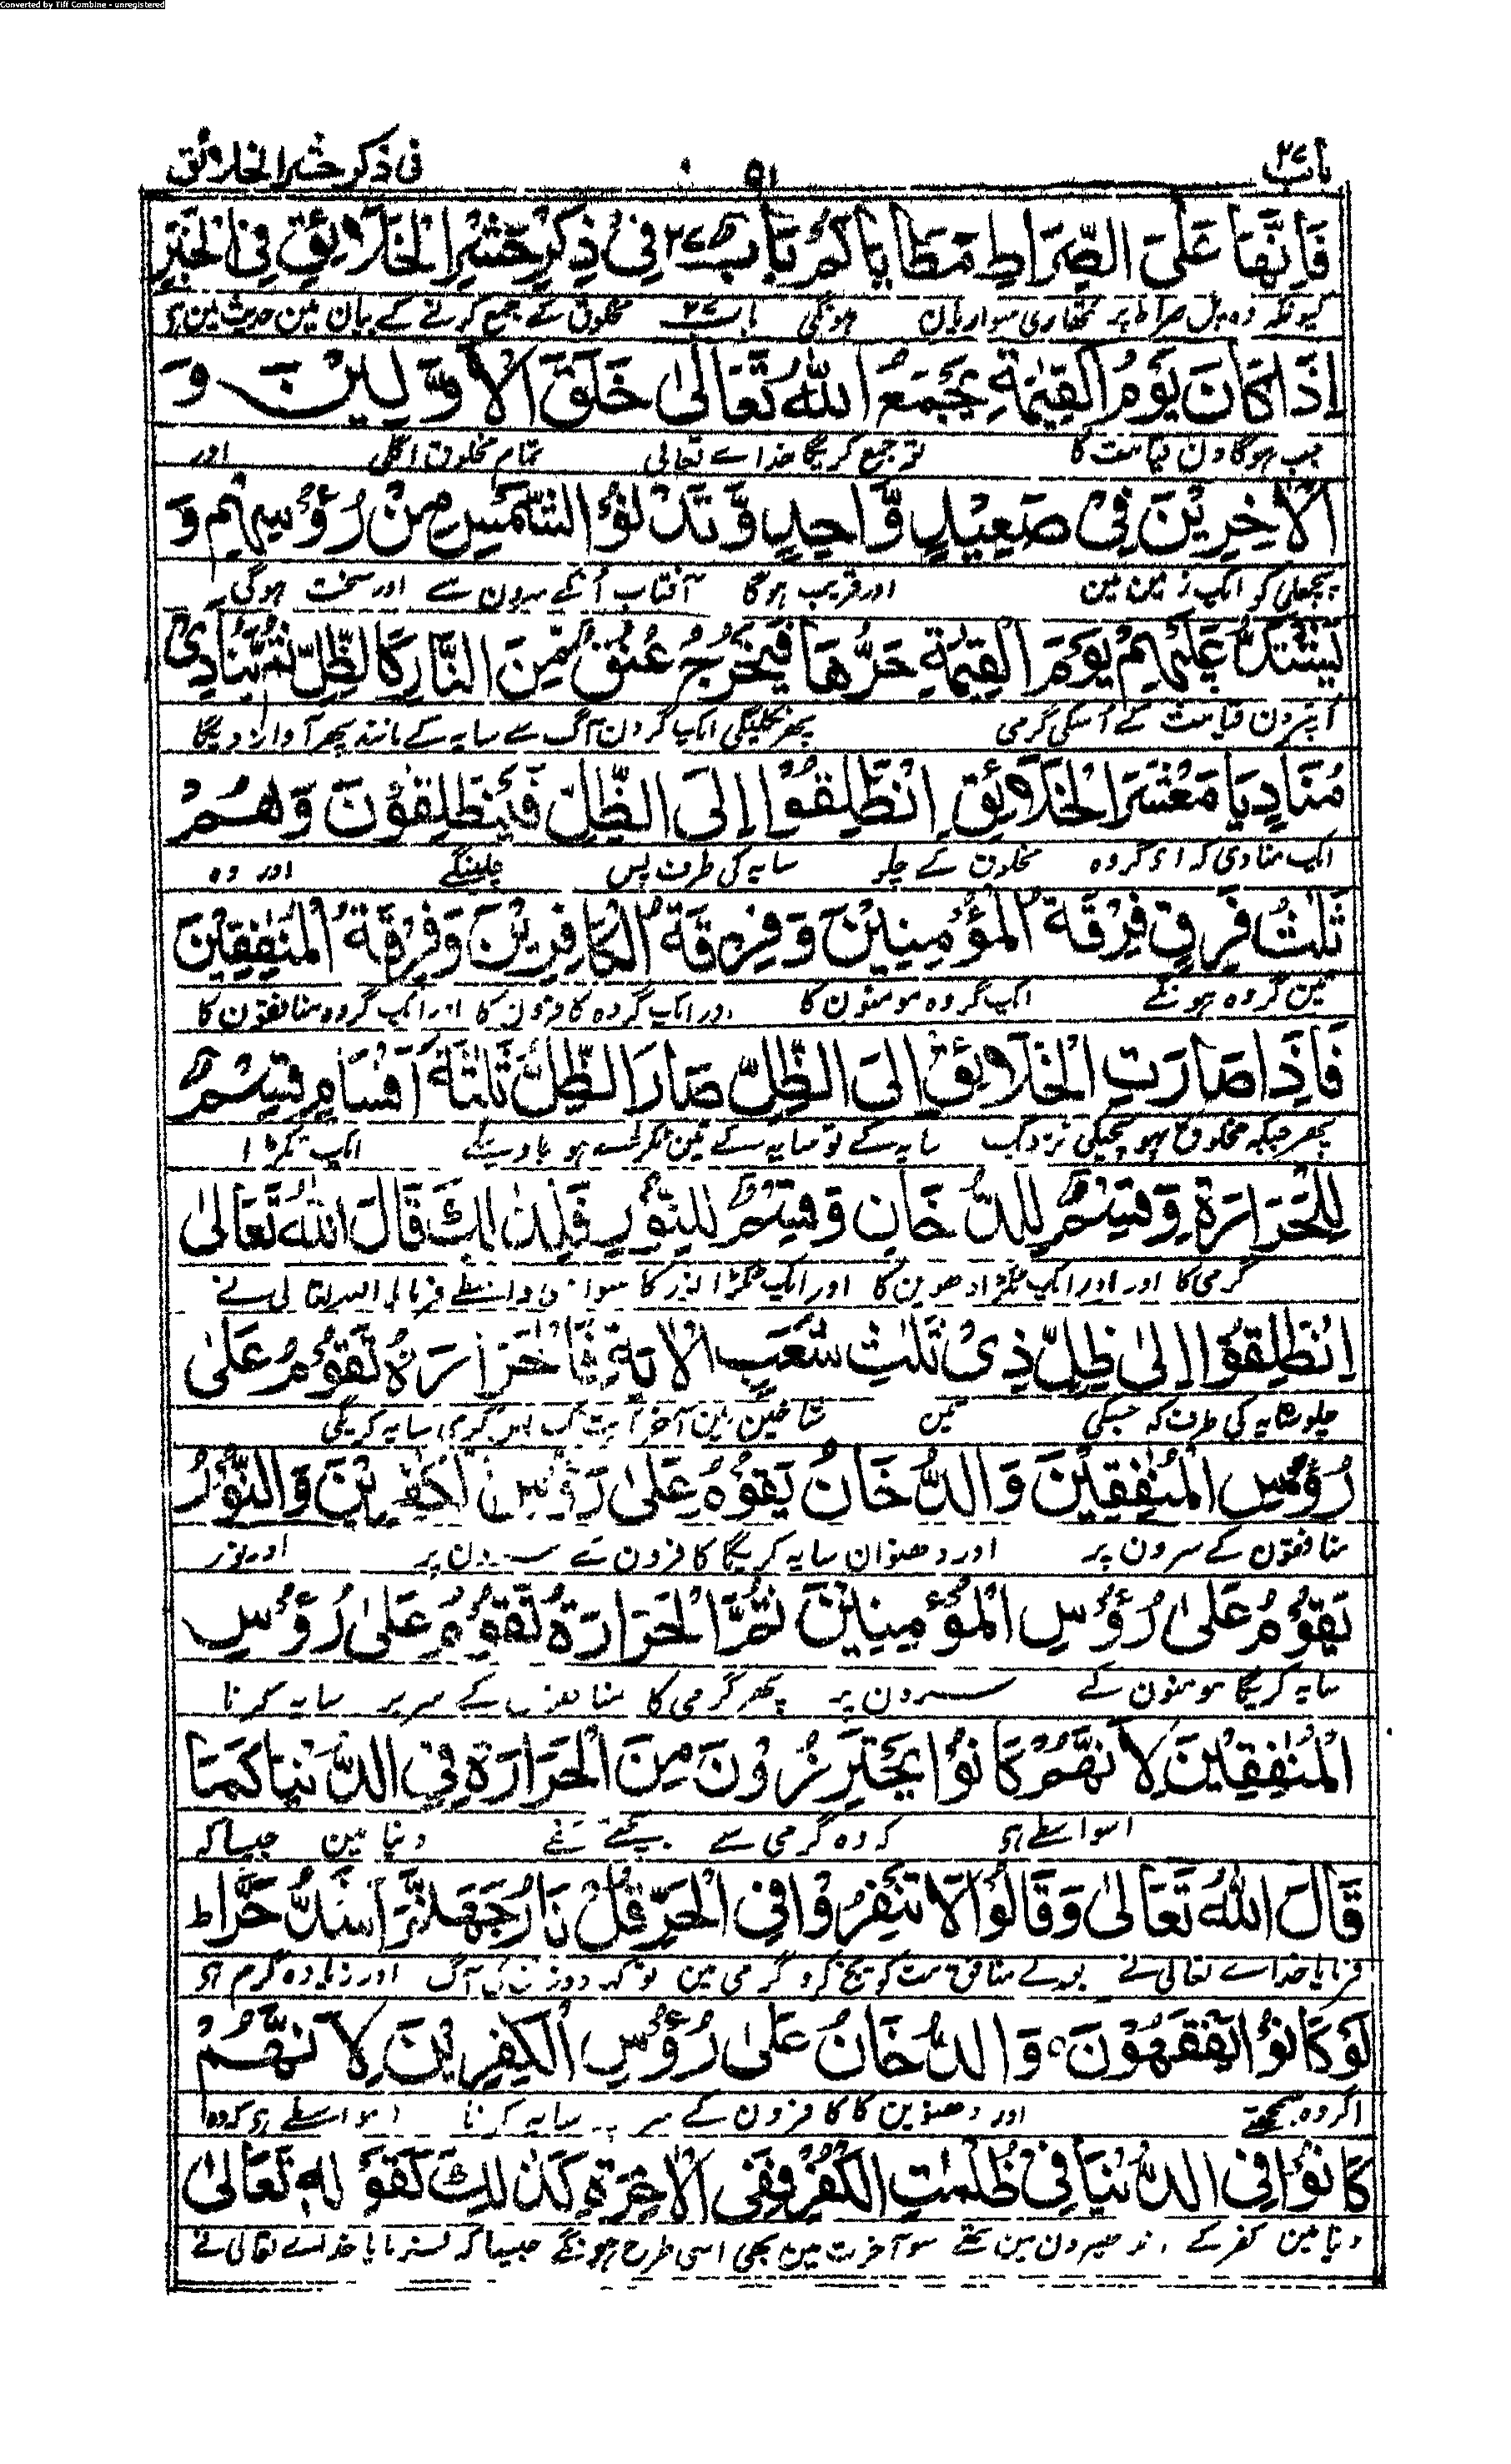 Converted by Tiff Combine - unregistered
باب ۲۷
۵۱
فی ذکر حشر الخلائق
فَاِنَّهَا عَلَی الصِّرَاطِ مَطَایَاکُمْ بَاب ۲۷ فِیْ ذِکْرِ حَشْرِ الْخَلَائِقِ فِی الْخَبَرِ
کیونکہ وہ پل صراط پر تمھاری سواریان ہونگی باب ۲۷ مخلوق کے جمع کرنے کے بیان مین حدیث مین ہی
اِذَا کَانَ یَوْمُ الْقِیٰمَةِ یَجْمَعُ اللّٰهُ تَعَالٰی خَلَقَ الْاَوَّلِیْنَ وَ
جب ہوگا دن قیامت کا تو جمع کریگا خداے تعالی تمام مخلوق اگلی اور
الْاٰخِرِیْنَ فِیْ صَعِیْدٍ وَّاحِدٍ وَّتَدْنُوْ الشَّمْسُ مِنْ رُؤُسِهِمْ وَ
پچھلی کو ایک زمین مین اور قریب ہوگا آفتاب اُنکے سرون سے اور سخت ہوگی
یَشْتَدُّ عَلَیْهِمْ یَوْمَ الْقِیٰمَةِ حَرُّهَا فَیَخْرُجُ عُنُقٌ مِّنَ النَّارِ کَالظِّلِّ ثُمَّ یُنَادِیْ
اُنپر دن قیامت کے اُسکی گرمی پھر نکلیگی ایک گردن آگ سے سایہ کے مانند پھر آواز دیگا
مُنَادٍ یَا مَعْشَرَ الْخَلَائِقِ اِنْطَلِقُوْا اِلَی الظِّلِّ فَیَنْطَلِقُوْنَ وَهُمْ
ایک منادی کہ ای گروہ مخلوق کے چلو سایہ کی طرف پس چلینگے اور وہ
ثَلٰثُ فِرَقٍ فِرْقَةُ الْمُؤْمِنِیْنَ وَفِرْقَةُ الْکَافِرِیْنَ وَفِرْقَةُ الْمُنٰفِقِیْنَ
تین گروہ ہونگے ایک گروہ مومنون کا اور ایک گروہ کافرون کا اور ایک گروہ منافقون کا
فَاِذَا صَارَتِ الْخَلَائِقُ اِلَی الظِّلِّ صَارَ الظِّلُّ ثَلٰثَةَ اَقْسَامٍ قِسْمٌ
پھر جبکہ مخلوق پہونچیگی نزدیک سایہ کے تو سایہ کے تین ٹکڑے ہو جاوینگے ایک ٹکڑا
لِلْحَرَارَةِ وَقِسْمٌ لِلدُّخَانِ وَقِسْمٌ لِلنُّوْرِ فَلِذٰلِكَ قَالَ اللّٰهُ تَعَالٰی
گرمی کا اور اور ایک ٹکڑا دھوین کا اور ایک ٹکڑا نور کا سو اسی واسطے فرمایا اللہ تعالی نے
اِنْطَلِقُوْا اِلٰی ظِلٍّ ذِیْ ثَلٰثِ شُعَبٍ الْاٰیَةِ فَالْحَرَارَةُ تَقُوْمُ عَلٰی
چلو سایہ کی طرف کہ جسکی تین شاخین ہین آخر آیت تک پس گرمی سایہ کریگی
رُؤُسِ الْمُنٰفِقِیْنَ وَالدُّخَانُ یَقُوْمُ عَلٰی رَؤُسِ الْکٰفِرِیْنَ وَالنُّوْرُ
منافقون کے سرون پر اور دھنوان سایہ کریگا کافرون کے سرون پر اور نور
یَقُوْمُ عَلٰی رُؤُسِ الْمُؤْمِنِیْنَ ثُمَّ الْحَرَارَةُ تَقُوْمُ عَلٰی رُؤُسِ
سایہ کریگا مومنون کے سرون پر پھر گرمی کا منافقون کے سر پر سایہ کرنا
الْمُنٰفِقِیْنَ لِاَنَّهُمْ کَانُوْا یَحْتَرِزُوْنَ مِنَ الْحَرَارَةِ فِی الدُّنْیَا کَمَا
اسواسطے ہی کہ وہ گرمی سے بچتے تھے دنیا مین جیسا کہ
قَالَ اللّٰهُ تَعَالٰی وَقَالُوْا لَا تَنْفِرُوْا فِی الْحَرِّ قُلْ نَارُ جَهَنَّمَ اَشَدُّ حَرًّا ط
فرمایا خداے تعالی نے بولے منافق مت کوچ کرو گرمی مین تو کہہ دوزخ کی آگ اور زیادہ گرم ہی
لَوْ کَانُوْا یَفْقَهُوْنَ وَالدُّخَانُ عَلٰی رُؤُسِ الْکٰفِرِیْنَ لِاَنَّهُمْ
اگر وہ سمجھتے اور دھنوین کا کافرون کے سر پہ سایہ کرنا اسواسطے ہی کہ وہ
کَانُوْا فِی الدُّنْیَا فِیْ ظُلُمٰتِ الْکُفْرِ فَفِی الْاٰخِرَةِ کَذٰلِكَ کَقَوْلِهٖ تَعَالٰی
دنیا مین کفر کے اندھیرون مین تھے سو آخرت مین بھی اسی طرح ہونگے جیسا کہ فرمایا خداے تعالی نے